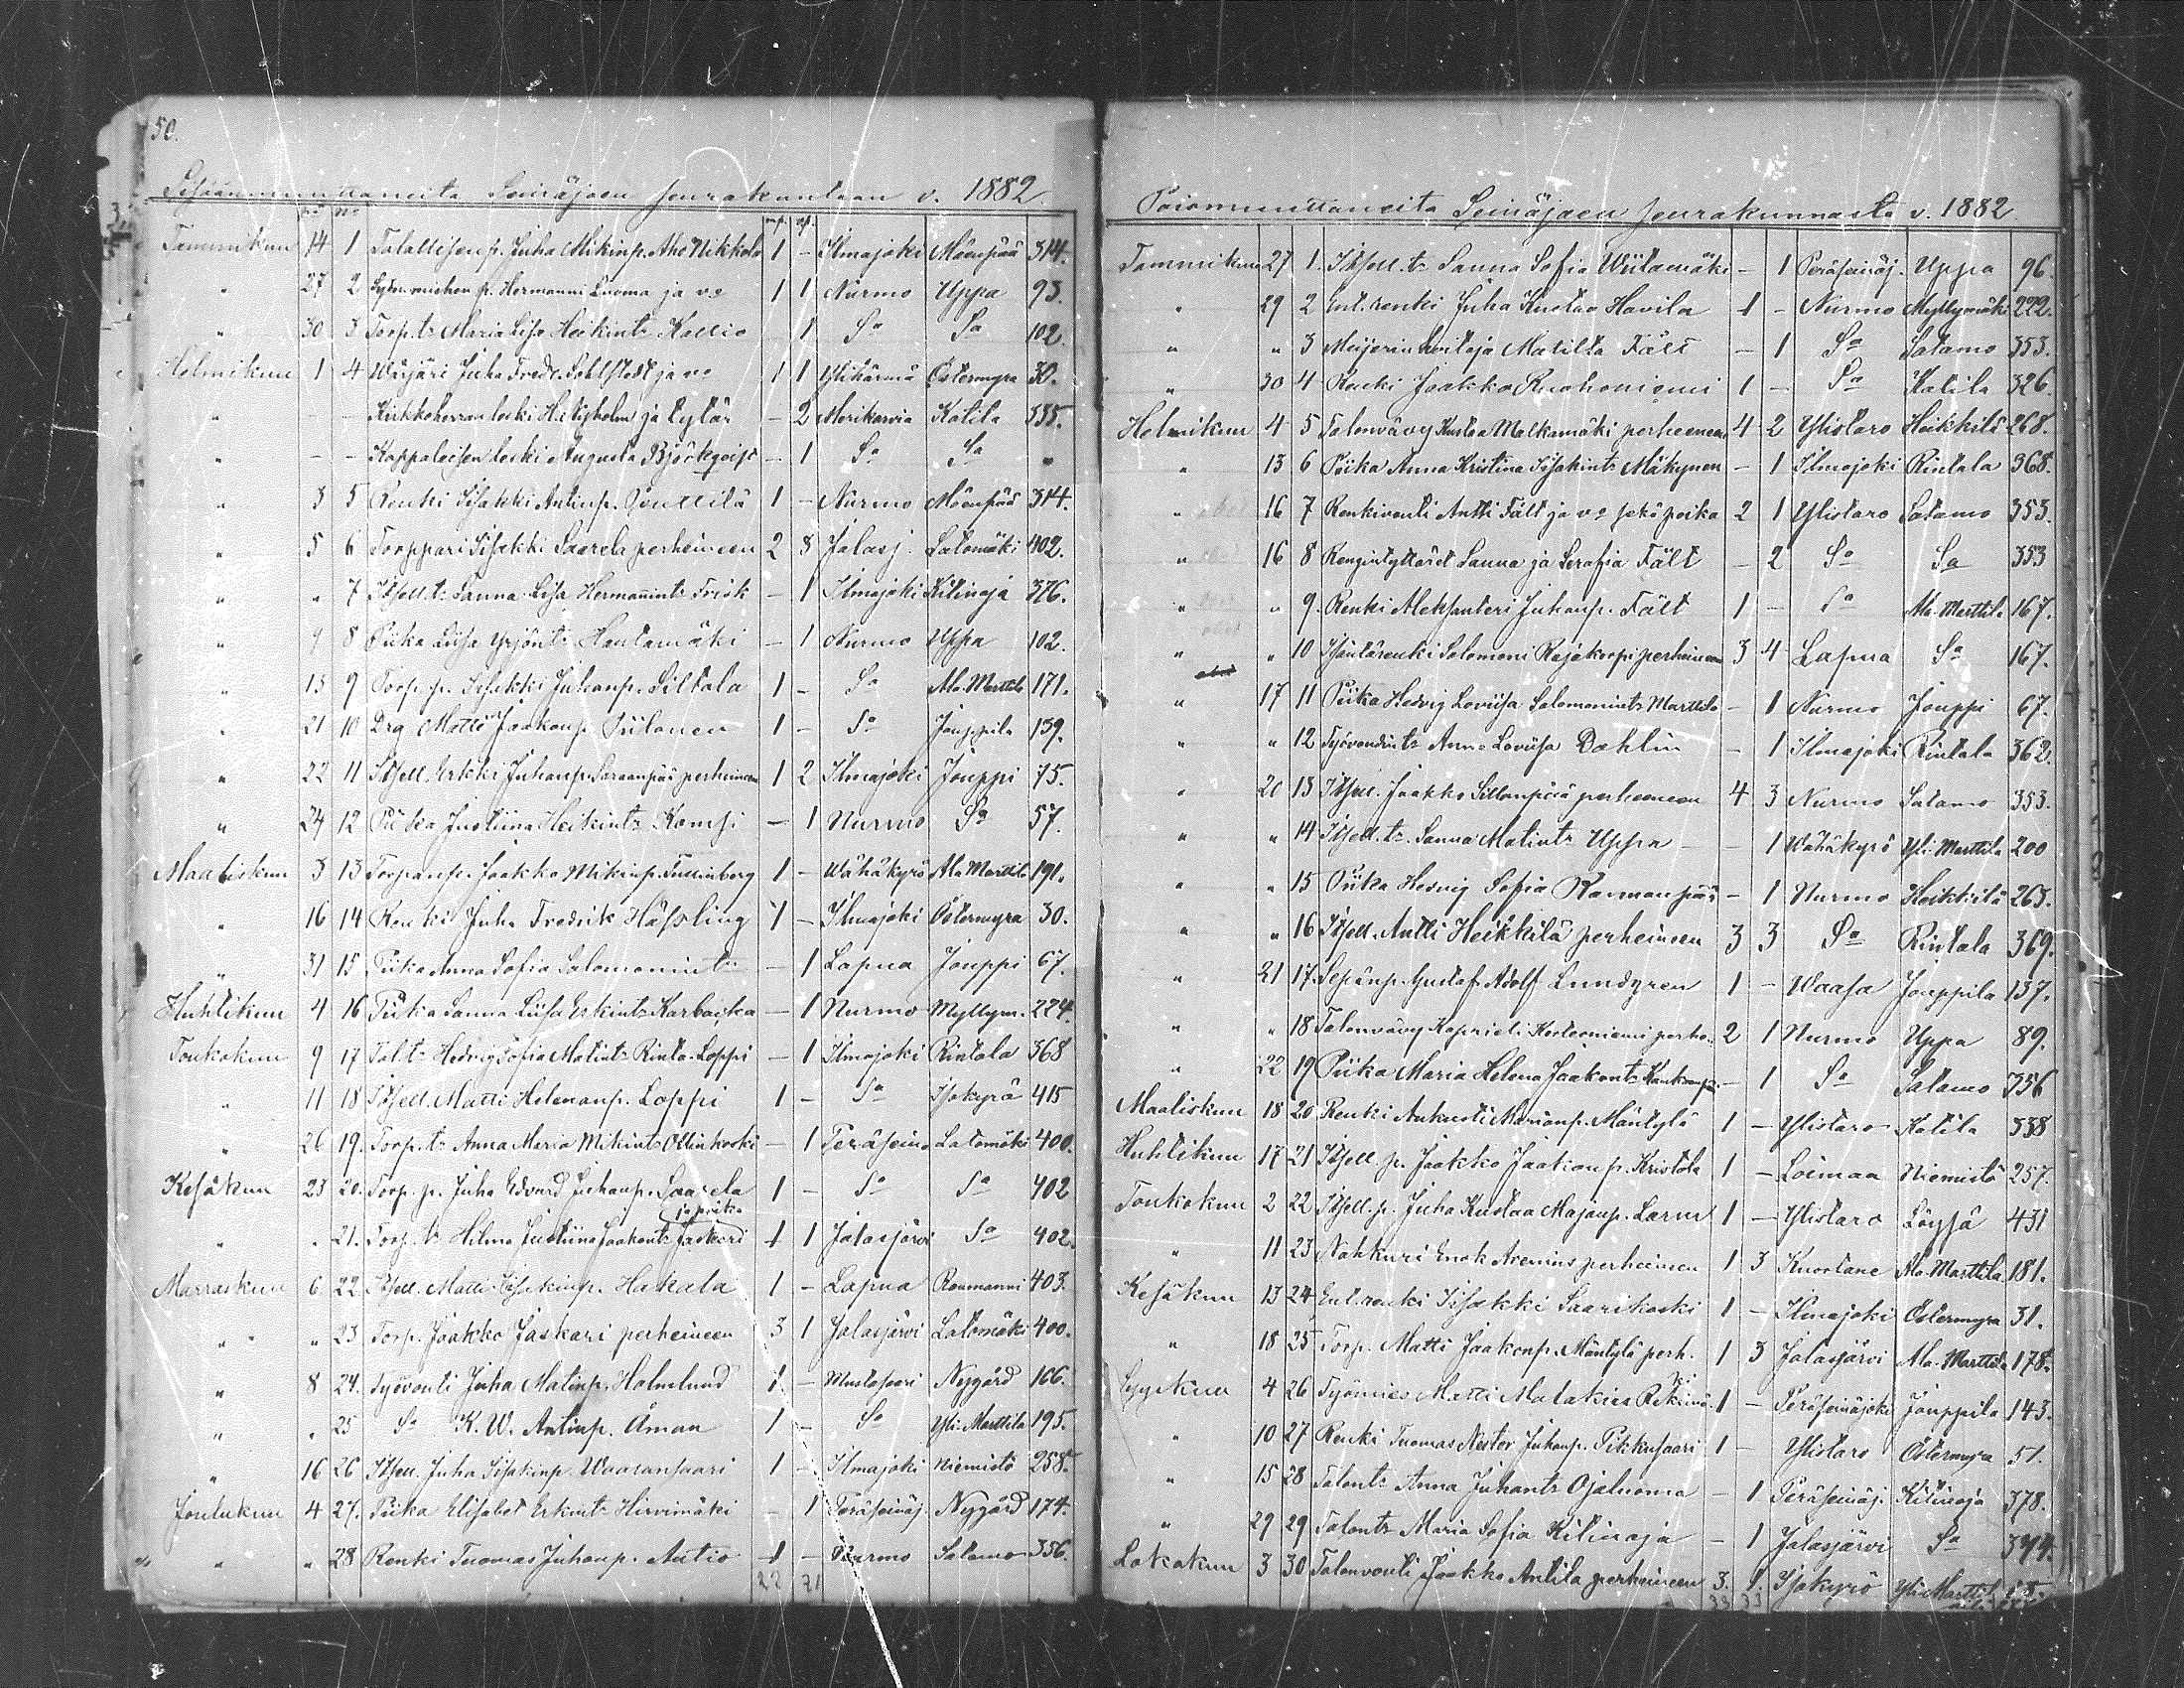 50.
Sisäänmuuttaneita Seinäjoen seurakuntaan v. 1882.
No No mp. vp.
Tammikuu 14 1 Talallisenp. Juha Mikinp. Aho Nikkola 1 - Ilmajoki Mäenpää 314.
" 27 2 Hermanni Luoma ja vo 1 1 Nurmo Uppa 93.
" 30 3 Torp.tr Maria Lisa Heikintr Kallio 1 So So 102.
Helmikuu 1 4 Värjäri Juha Fredr. Sohlstedt ja vo 1 1 Ylihärmä Östermyra 30.
" - - Kirkkoherran leski ja tytär - 2 Merikarvia Katila 335.
" - - Kappalaisen leski Augusta Björkqvist - 1 So So "
" 3 5 Renki Iisakki Antinp. 1 - Nurmo Mäenpää 314.
" 5 6 Torppari Iisakki Saarela perheineen 2 3 Jalasj. Latomäki 402.
" " 7 Itsell.tr Sanna Lisa Hermannintr Frisk - 1 Ilmajoki Kitinoja 376.
" 9 8 Piika Liisa Yrjöntr Hautamäki - 1 Nurmo Uppa 102.
" 13 9 Torp.p. Iisakki Juhanp. Siltala 1 - So Ala-Marttila 171.
" 21 10 Drg Matti Jaakonp. Piilonen 1 - So Jouppila 139.
" 22 11 Itsell. Erkki Juhanp. perheineen 1 2 Ilmajoki Jouppi 75.
" 24 12 Piika Justiina Heikintr Kompi - 1 Nurmo So 57.
Maaliskuu 3 13 Torparinp. Jaakko Mikinp. 1 - Wähäkyrö Ala Marttila 191.
" 16 14 Renki Juha Fredrik Hässling 1 - Ilmajoki Östermyra 30.
" 31 15 Piika Anna Sofia Salomonintr - 1 Lapua Jouppi 67.
Huhtikuu 4 16 Piika Sanna Liisa Erkintr Karbacka - 1 Nurmo Myllym. 224.
Toukokuu 9 17 Tal.tr Hedvig Sofia Matintr Rinta-Loppi - 1 Ilmajoki Rintala 368
" 11 18 Itsell. Matti Helenanp. Loppi 1 - So Isokyrö 415
" 26 19. Torp.tr Anna Maria Mikintr Ollinkoski - 1 Peräsein. Latomäki 400.
Kesäkuu 23 20. Torp.p. Juha Edvard Juhanp. Saarela 1 - So So 402
ja poika
" " 21. Torp.tr Hilma Justiina Jaakontr Jaskari 1 1 Jalasjärvi So 402.
Marraskuu 6 22 Itsell. Matti Iisakinp. Hakala 1 - Lapua Roumanni 403.
" " 23 Torp. Jaakko Jaskari perheineen 3 1 Jalasjärvi Latomäki 400.
" 8 24. Työvouti Juha Matinp. Holmlund 1 - Mustasaari Nygård 166.
" " 25 So K. W. Antinp. Åman 1 - So Yli-Marttila 195.
" 16 26 Itsell. Juha Iisakinp. Waaransaari 1 - Ilmajoki Niemistö 258.
Joulukuu 4 27. Piika Elisabet Erkintr Hirvimäki - 1 Peräseinäj. Nygård 174.
" " 28 Renki Tuomas Juhanp. Autio 1 - Nurmo Salamo 356.
22 21
Poismuuttaneita Seinäjoen seurakunnasta v. 1882.
Tammikuu 27 1. Itsell.tr Sanna Sofia Wiitamäki - 1 Peräseinäj. Uppa 96.
" 29 2 Ent. renki Juha Kustaa Havila 1 - Nurmo Myllymäki 222.
" " 3 Meijerinhoitaja Matilta Fält - 1 So Salamo 353.
" 30 4 Renki Jaakko Ruohoniemi 1 - So Katila 326.
Helmikuu 4 5 Talonvävy Kustaa Malkamäki perheineen 4 2 Ylistaro Heikkilä 268.
" 13 6 Piika Anna Kristiina Iisakintr Mäkynen - 1 Ilmajoki Rintala 368.
" 16 7 Renkivouti Antti Fält ja vo sekä poika 2 1 Ylistaro Salamo 353.
" 16 8 Rengintyttäret Sanna ja Serafia Fält - 2 So So 353
" " 9. Renki Aleksanteri Juhanp. Fält 1 - So Ala-Marttila 167.
" " 10 Isäntärenki Salomoni Rajakorpi perheineen 3 4 Lapua So 167.
" 17 11 Piika Hedvig Loviisa Salomonintr Marttila - 1 Nurmo Jouppi 67.
" " 12 Työvoudintr Anna Loviisa Dahlin - 1 Ilmajoki Rintala 362.
" 20 13 Itsell. Jaakko Sillanpää perheineen 4 3 Nurmo Salamo 353.
" " 14 Itsell.tr Sanna Matintr Uppa - 1 Wähäkyrö Yli-Marttila 200
" " 15 Piika Hedvig Sofia Ramanpää - 1 Nurmo Heikkilä 263.
" " 16 Itsell. Antti Heikkilä perheineen 3 3 So Rintala 369.
" 21 17. Sepänp. Gustaf Adolf Lundgren 1 - Waasa Jouppila 137.
" " 18 Talonvävy Kaprieli Koskenniemi perh. 2 1 Nurmo Uppa 89.
" 22 19 Piika Maria Helena Jaakontr - 1 So Salamo 356
Maaliskuu 18 20 Renki Aukusti Marianp. Mäntylä 1 - Ylistaro Katila 338
Huhtikuu 17 21 Itsell. p. Jaakko Jaakonp. Kristola 1 - Loimaa Niemistö 257.
Toukokuu 2 22 Itsell. p. Juha Kustaa Majanp. 1 - Ylistaro Löysä 431
" 11 23 Nahkuri Enok Arenius perheineen 1 3 Kuortane Ala-Marttila 181.
Kesäkuu 13 24 Ent. renki Iisakki Saarikoski 1 - Ilmajoki Östermyra 31.
" 18 25 Torp. Matti Jaakonp. Mäntylä perh. 1 3 Jalasjärvi Ala-Marttila 178.
Syyskuu 4 26 Työmies Matti Malakias 1 - Peräseinäjoki Jouppila 143.
" 10 27 Renki Tuomas Nestor Juhanp. Pikkusaari 1 - Ylistaro Östermyra 51.
" 15 28 Talontr Anna Juhantr Ojaluoma - 1 Peräseinäj. Kitinoja 378.
" 29 29 Talontr Maria Sofia Kitinoja - 1 Jalasjärvi So
Lokakuu 3 30 Talonvouti Jaakko Antila perheineen 3. 1. Isokyrö Yli-Marttila
33 33